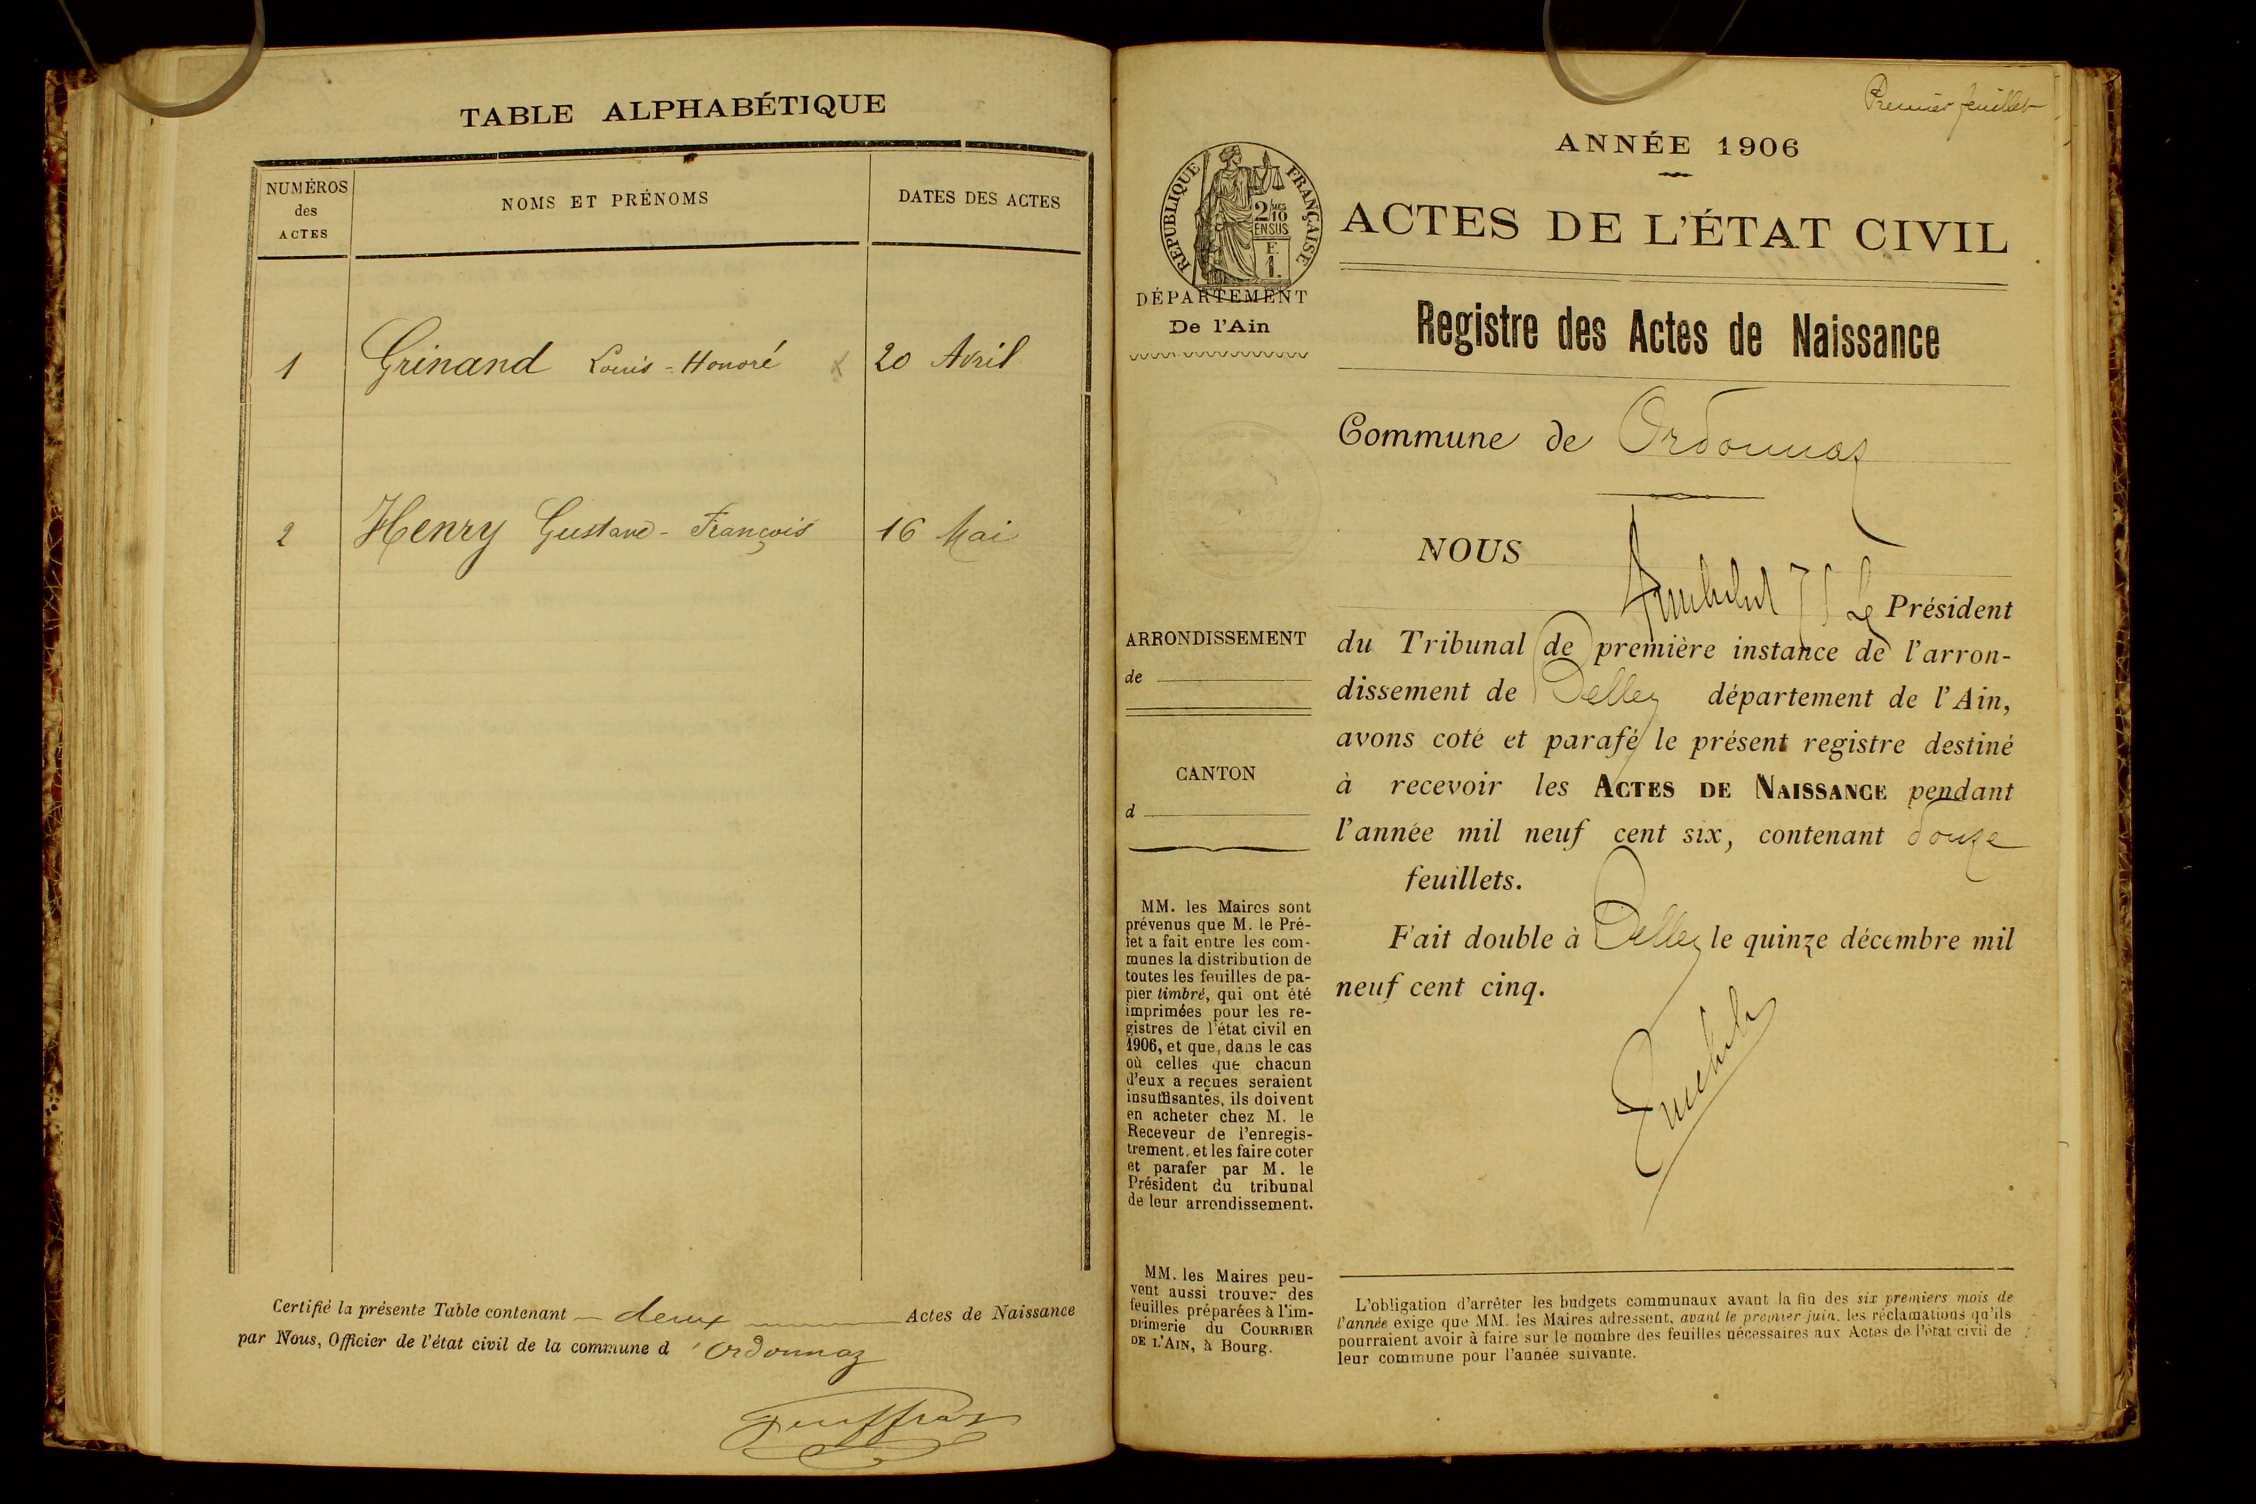 TABLE ALPHABÉTIQUE
NUMÉROS
des
ACTES
NOMS ET PRÉNOMS
DATES DES ACTES
1 Grinand Louis-Honoré 20 Avril
2 Henry Gustave-François 16 Mai
Certifié la présente Table contenant deux Actes de Naissance
par Nous, Officier de l'état civil de la commune d'Ordonnaz
Premier feuillet
ANNÉE 1906
RÉPUBLIQUE FRANÇAISE
2/10
EN SUS
F
1.
DÉPARTEMENT
De l'Ain
ACTES DE L'ÉTAT CIVIL
Registre des Actes de Naissance
Commune de Ordonnaz
NOUS
Le Président
du Tribunal de première instance de l'arron-
dissement de Belley département de l'Ain,
avons coté et parafé le présent registre destiné
à recevoir les ACTES DE NAISSANCE pendant
l'année mil neuf cent six, contenant douze
feuillets.
Fait double à Belley le quinze décembre mil
neuf cent cinq.
ARRONDISSEMENT
de
CANTON
d
MM. les Maires sont
prévenus que M. le Pré-
fet a fait entre les com-
munes la distribution de
toutes les feuilles de pa-
pier timbré, qui ont été
imprimées pour les re-
gistres de l'état civil en
1906, et que, dans le cas
où celles que chacun
d'eux a reçues seraient
insuffisantes, ils doivent
en acheter chez M. le
Receveur de l'enregis-
trement, et les faire coter
et parafer par M. le
Président du tribunal
de leur arrondissement.
MM. les Maires peu-
vent aussi trouver des
feuilles préparées à l'im-
primerie du COURRIER
DE L'AIN, à Bourg.
L'obligation d'arrêter les budgets communaux avant la fin des six premiers mois de
l'année exige que MM. les Maires adressent, avant le premier juin, les réclamations qu'ils
pourraient avoir à faire sur le nombre des feuilles nécessaires aux Actes de l'état civil de
leur commune pour l'année suivante.